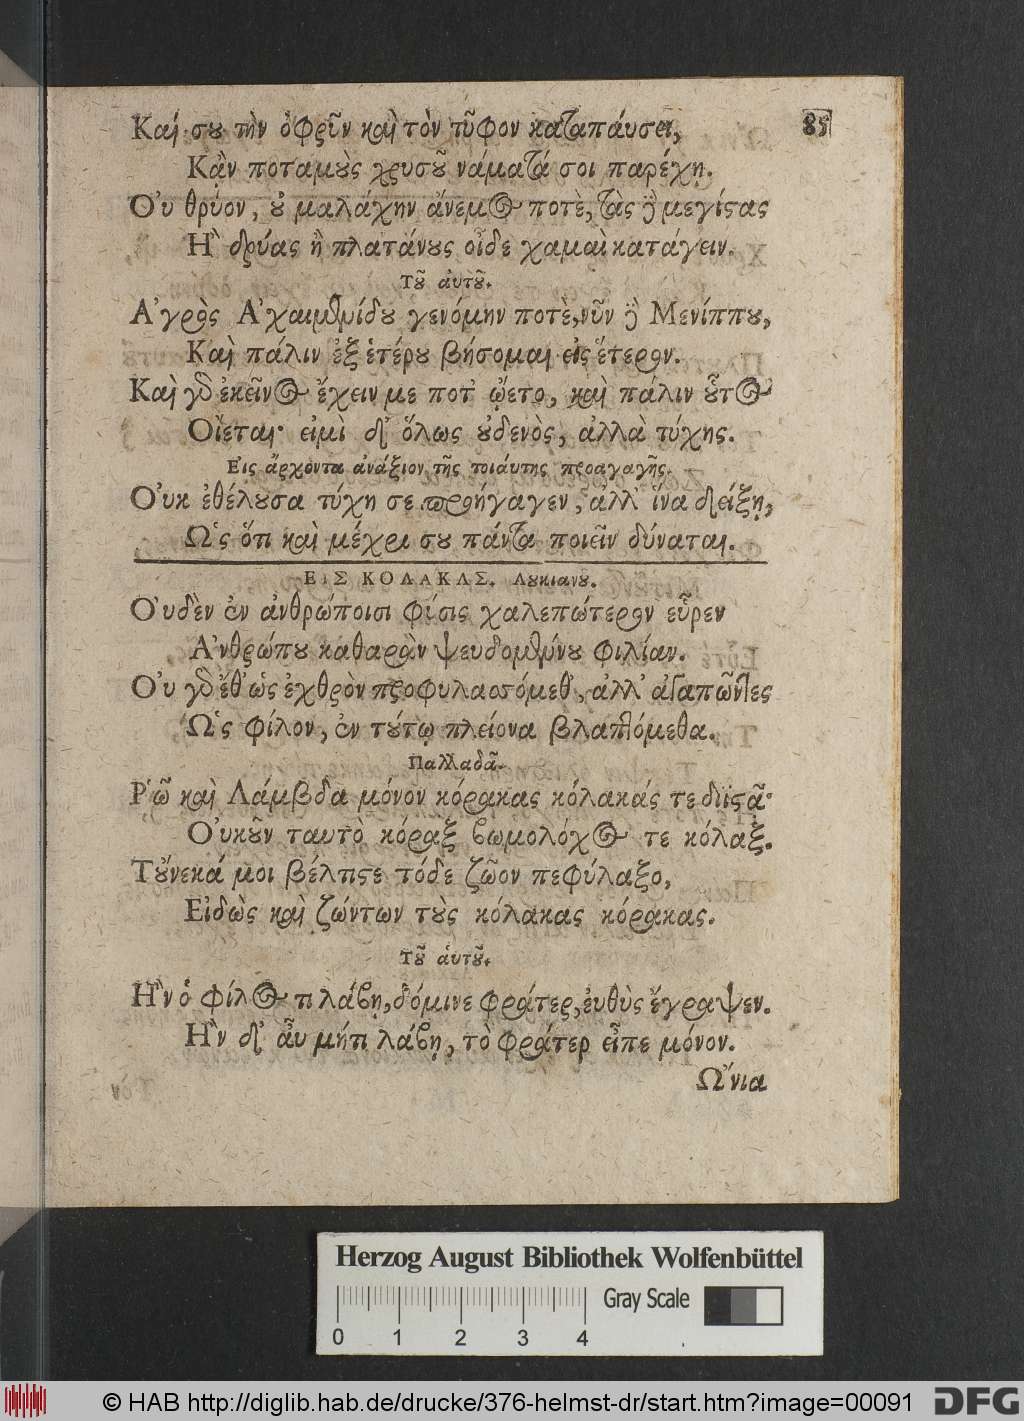 Καί σου τὴν ὀφρῦν καὶ τὸν τῦφον καταπαύσει, 85
Κᾂν ποταμοὺς χρυσοῦ νάματά σοι παρέχῃ.
Ὀυ θρύον, οὐ μαλάχην ἄνεμος ποτὲ, τὰς δὲ μεγίστας
Ἢ δρύας ἢ πλατάνους οἶδε χαμαὶ κατάγειν.
Τοῦ ἀυτοῦ.
Ἀγρὸς Ἀχαιμενίδου γενόμην ποτὲ, νῦν δὲ Μενίππου,
Καὶ πάλιν ἐξ ἑτέρου βήσομαι εἰς ἕτερον.
Καὶ γὰρ ἐκεῖνος ἔχειν με ποτ' ᾤετο, καὶ πάλιν οὗτος
Οἴεται· εἰμὶ δ' ὅλως οὐδενὸς, ἀλλὰ τύχης.
Εἰς ἄρχοντα ἀνάξιον τῆς τοιάυτης προαγαγῆς.
Ὀυκ ἐθέλουσα τύχη σε προήγαγεν, ἀλλ' ἵνα δείξῃ,
Ὡς ὅτι καὶ μέχρι σου πάντα ποιεῖν δύναται.
ΕΙΣ ΚΟΛΑΚΑΣ. Λουκιανου.
Ὀυδὲν ἐν ἀνθρώποισι φύσις χαλεπώτερον εὗρεν
Ἀνθρώπου καθαρὰν ψευδομένου φιλίαν.
Ὀυ γὰρ ἔθ' ὡς ἐχθρὸν προφυλασσόμεθ', ἀλλ' ἀγαπῶντες
Ὡς φίλον, ἐν τούτῳ πλείονα βλαπτόμεθα.
Παλλαδᾶ.
Ῥῶ καὶ Λάμβδα μόνον κόρακας κόλακάς τε διϊστᾷ·
Ὀυκοῦν ταυτὸ κόραξ βωμολόχος τε κόλαξ.
Τοὔνεκά μοι βέλτιστε τόδε ζῶον πεφύλαξο,
Εἰδὼς καὶ ζώντων τοὺς κόλακας κόρακας.
Τοῦ ἀυτοῦ.
Ἢν ὁ φίλος τι λάβῃ, δόμινε φράτερ, ἐυθὺς ἔγραψεν.
Ἢν δ' αὖ μήτι λάβῃ, τὸ φράτερ εἶπε μόνον.
Ὤνια
Herzog August Bibliothek Wolfenbüttel
Gray Scale
0 1 2 3 4
© HAB http://diglib.hab.de/drucke/376-helmst-dr/start.htm?image=00091
DFG